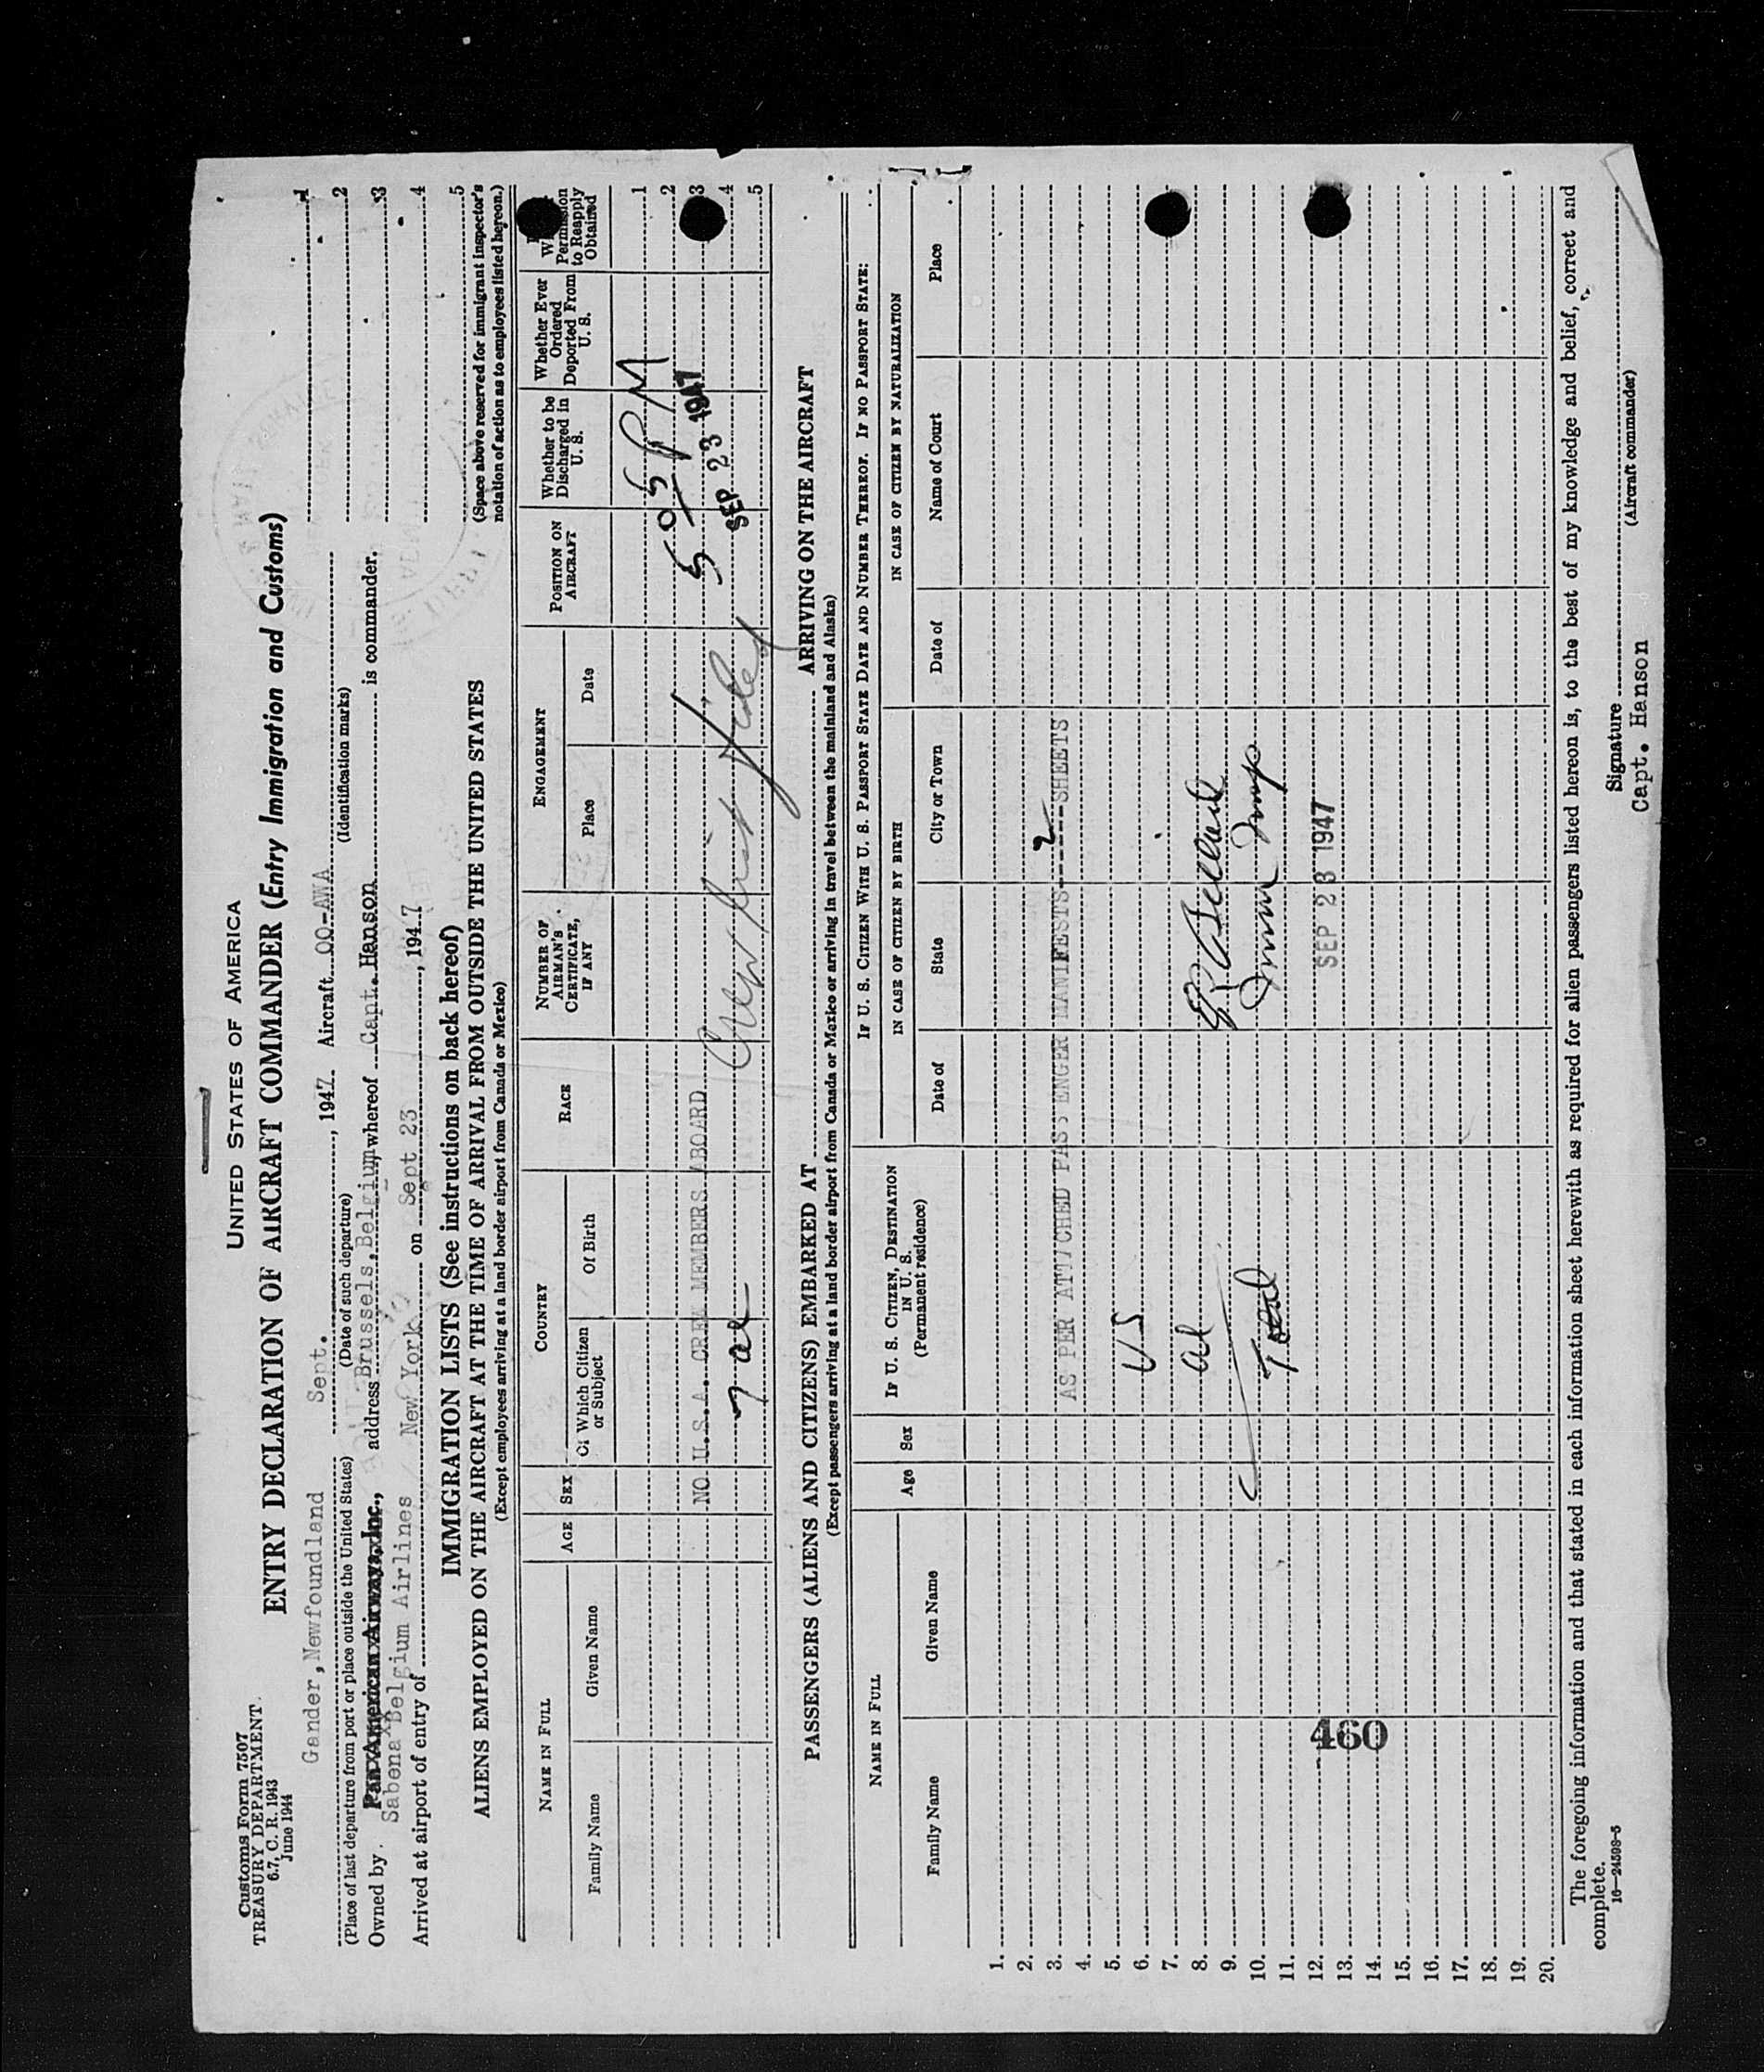 UNITED STATES OF AMERICA
Customs Form 7507
TREASURY DEPARTMENT
6.7, C. R. 1943
June 1944
ENTRY DECLARATION OF AIRCRAFT COMMANDER (Entry Immigration and Customs)
Gander, Newfoundland Sept. , 1947. Aircraft OO-AWA
(Place of last departure from port or place outside the United States) (Date of such departure) (Identification marks)
Owned by Pan American Airways, Inc., address Brussels, Belgium, whereof Capt. Hanson is commander.
Sabena Belgium Airlines
Arrived at airport of entry of New York on Sept 23, 1947
1
2
3
4
5
(Space above reserved for immigrant inspector's
notation of action as to employees listed hereon.)
IMMIGRATION LISTS (See instructions on back hereof)
ALIENS EMPLOYED ON THE AIRCRAFT AT THE TIME OF ARRIVAL FROM OUTSIDE THE UNITED STATES
(Except employees arriving at a land border airport from Canada or Mexico)
NAME IN FULL
Family Name
Given Name
AGE
SEX
COUNTRY
Of Which Citizen or Subject
Of Birth
RACE
NUMBER OF AIRMAN'S CERTIFICATE, IF ANY
ENGAGEMENT
Place
Date
POSITION ON AIRCRAFT
Whether to be Discharged in U. S.
Whether Ever Ordered Deported From U. S.
Permission to Reapply Obtained
1
2
3
4
5
505 PM
SEP 23 1947
NO U.S.A. CREW MEMBERS ABOARD
7 al
Crew list filed
PASSENGERS (ALIENS AND CITIZENS) EMBARKED AT ARRIVING ON THE AIRCRAFT
(Except passengers arriving at a land border airport from Canada or Mexico or arriving in travel between the mainland and Alaska)
NAME IN FULL
Family Name
Given Name
Age
Sex
IF U. S. CITIZEN, DESTINATION IN U. S.
(Permanent residence)
IF U. S. CITIZEN WITH U. S. PASSPORT STATE DATE AND NUMBER THEREOF. IF NO PASSPORT STATE:
IN CASE OF CITIZEN BY BIRTH
Date of
State
City or Town
IN CASE OF CITIZEN BY NATURALIZATION
Date of
Name of Court
Place
1.
2.
3.
AS PER ATTACHED PASSENGER MANIFESTS----2----SHEETS
4.
5.
US
6.
7.
al
8.
9.
10.
Total
Imm Insp
11.
12.
SEP 23 1947
13.
460
14.
15.
16.
17.
18.
19.
20.
The foregoing information and that stated in each information sheet herewith as required for alien passengers listed hereon is, to the best of my knowledge and belief, correct and
complete.
16—24598-5
Signature
Capt. Hanson
(Aircraft commander)